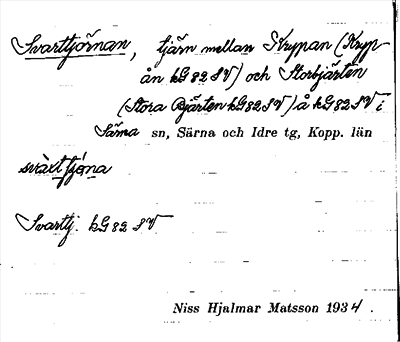 Svarttjörnan, tjärn mellan Krypan (Kryp-
ån kG 82 SV) och Storbjärten
(Stora Bjärten kG 82 SV) å kG 82 SV i
Särna sn, Särna och Idre tg, Kopp. län
svàrttjö́na
Svarttj. kG 82 SV
Niss Hjalmar Matsson 1934.